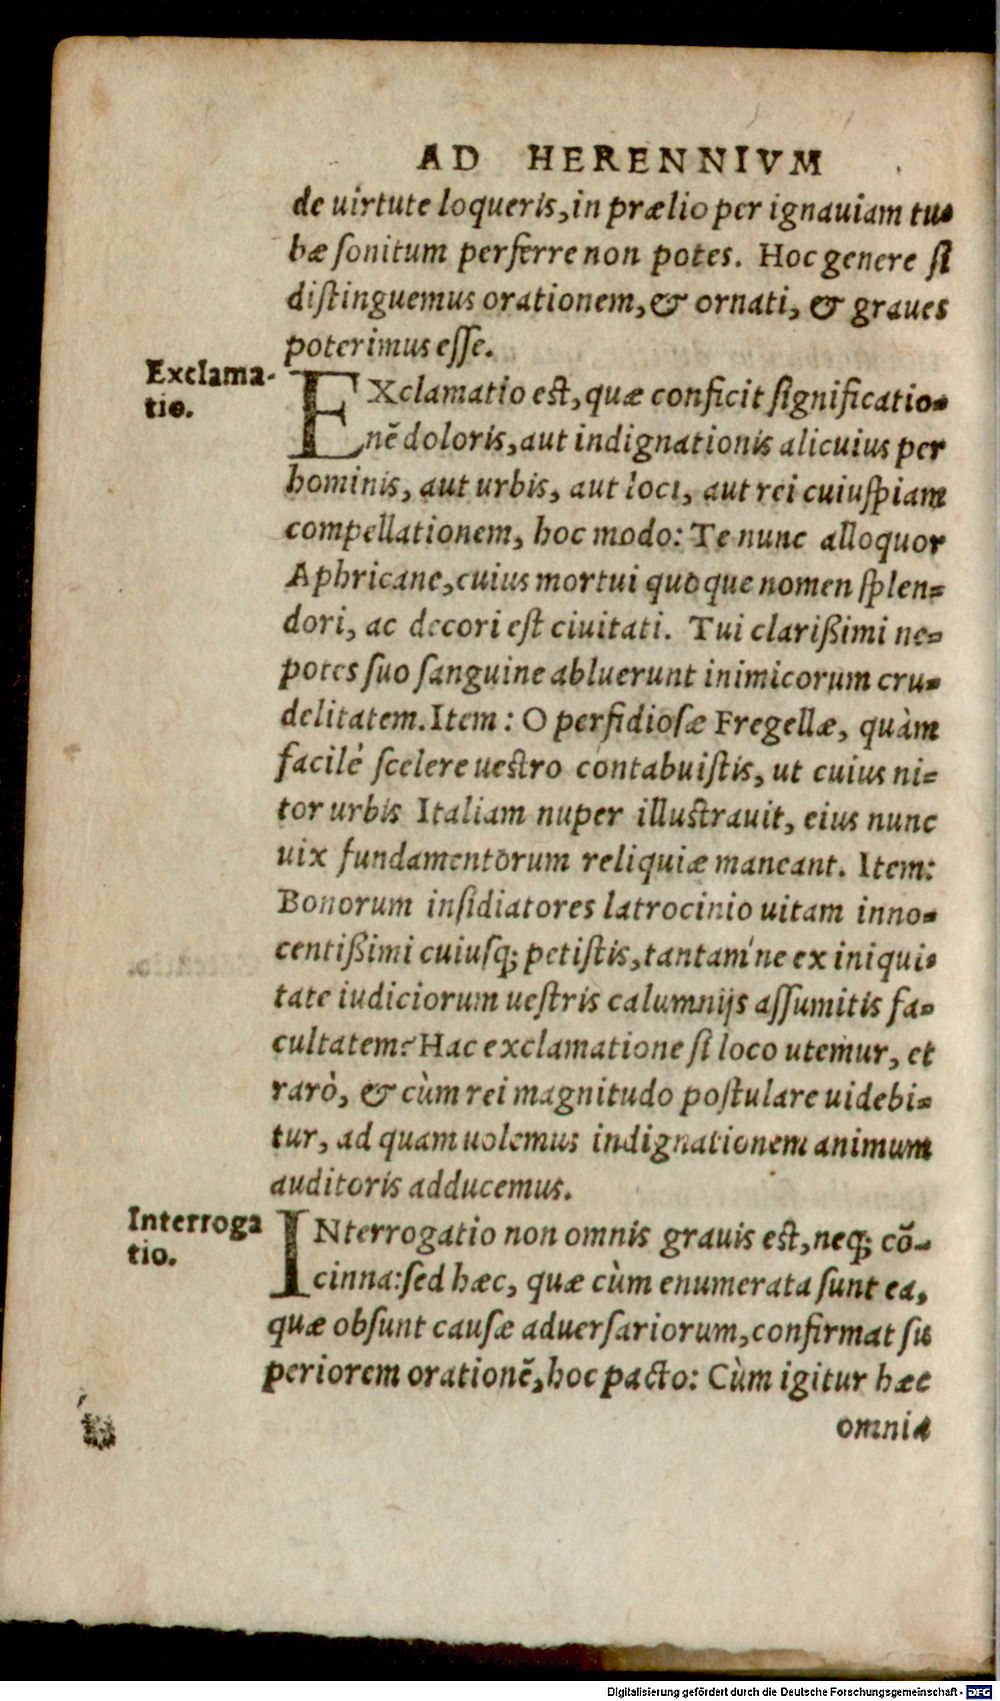 AD HERENNIVM
de uirtute loqueris, in prælio per ignauiam tu-
bæ ſonitum perferre non potes. Hoc genere ſi
diſtinguemus orationem, & ornati, & graues
poterimus eſſe.
Exclama-
tio.
EXclamatio eſt, quæ conficit ſignificatio-
nē doloris, aut indignationis alicuius per
hominis, aut urbis, aut loci, aut rei cuiuſpiam
compellationem, hoc modo: Te nunc alloquor
Aphricane, cuius mortui quoque nomen ſplen-
dori, ac decori eſt ciuitati. Tui clarißimi ne-
potes ſuo ſanguine abluerunt inimicorum cru-
delitatem. Item: O perfidioſæ Fregellæ, quàm
facilè ſcelere ueſtro contabuiſtis, ut cuius ni-
tor urbis Italiam nuper illuſtrauit, eius nunc
uix fundamentorum reliquiæ maneant. Item:
Bonorum inſidiatores latrocinio uitam inno-
centißimi cuiuſq; petiſtis, tantam'ne ex iniqui-
tate iudiciorum ueſtris calumnijs aſſumitis fa-
cultatem? Hac exclamatione ſi loco utemur, et
rarò, & cùm rei magnitudo poſtulare uidebi-
tur, ad quam uolemus indignationem animum
auditoris adducemus.
Interroga
tio.
INterrogatio non omnis grauis eſt, neq; cō-
cinna: ſed hæc, quæ cùm enumerata ſunt ea,
quæ obſunt cauſæ aduerſariorum, confirmat ſu
periorem orationē, hoc pacto: Cùm igitur hæc
omnia
Digitalisierung gefördert durch die Deutsche Forschungsgemeinschaft - DFG